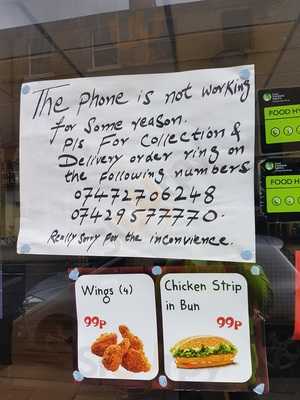 The Phone is not working
for some reason.
Pls For Collection &
Delivery order ring on
the following numbers
07472706248
07429577770.
Really sorry for the inconvenience.
FOOD H
FOOD H
Wings (4)
99p
Chicken Strip
in Bun
99p